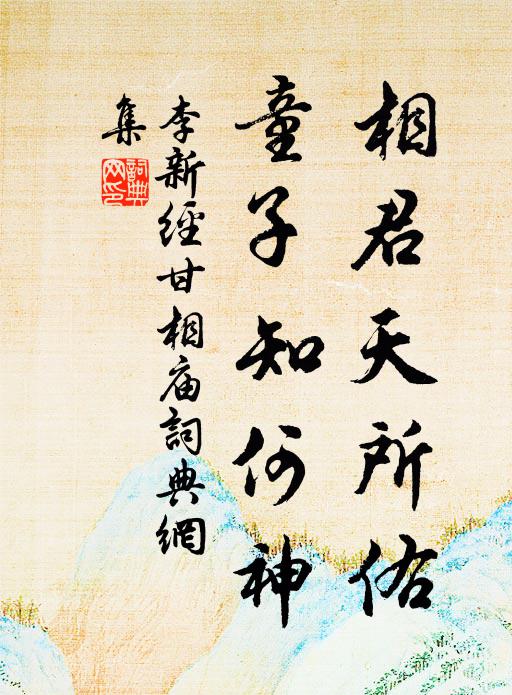 相君天所佑
童子知何神
李新經甘相庙詞典網
集
詞典
网印